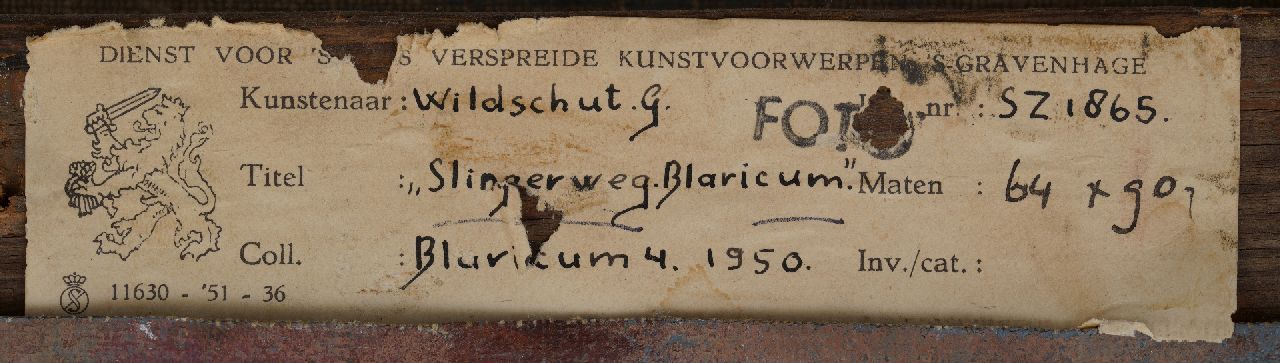 DIENST VOOR 'S S VERSPREIDE KUNSTVOORWERPEN 'S-GRAVENHAGE
Kunstenaar : Wildschut. G. FOTO nr. : SZ 1865.
Titel : „Slingerweg. Blaricum." Maten : 64 x 90,
Coll. : Blaricum 4. 1950. Inv./cat. :
11630 - '51 - 36